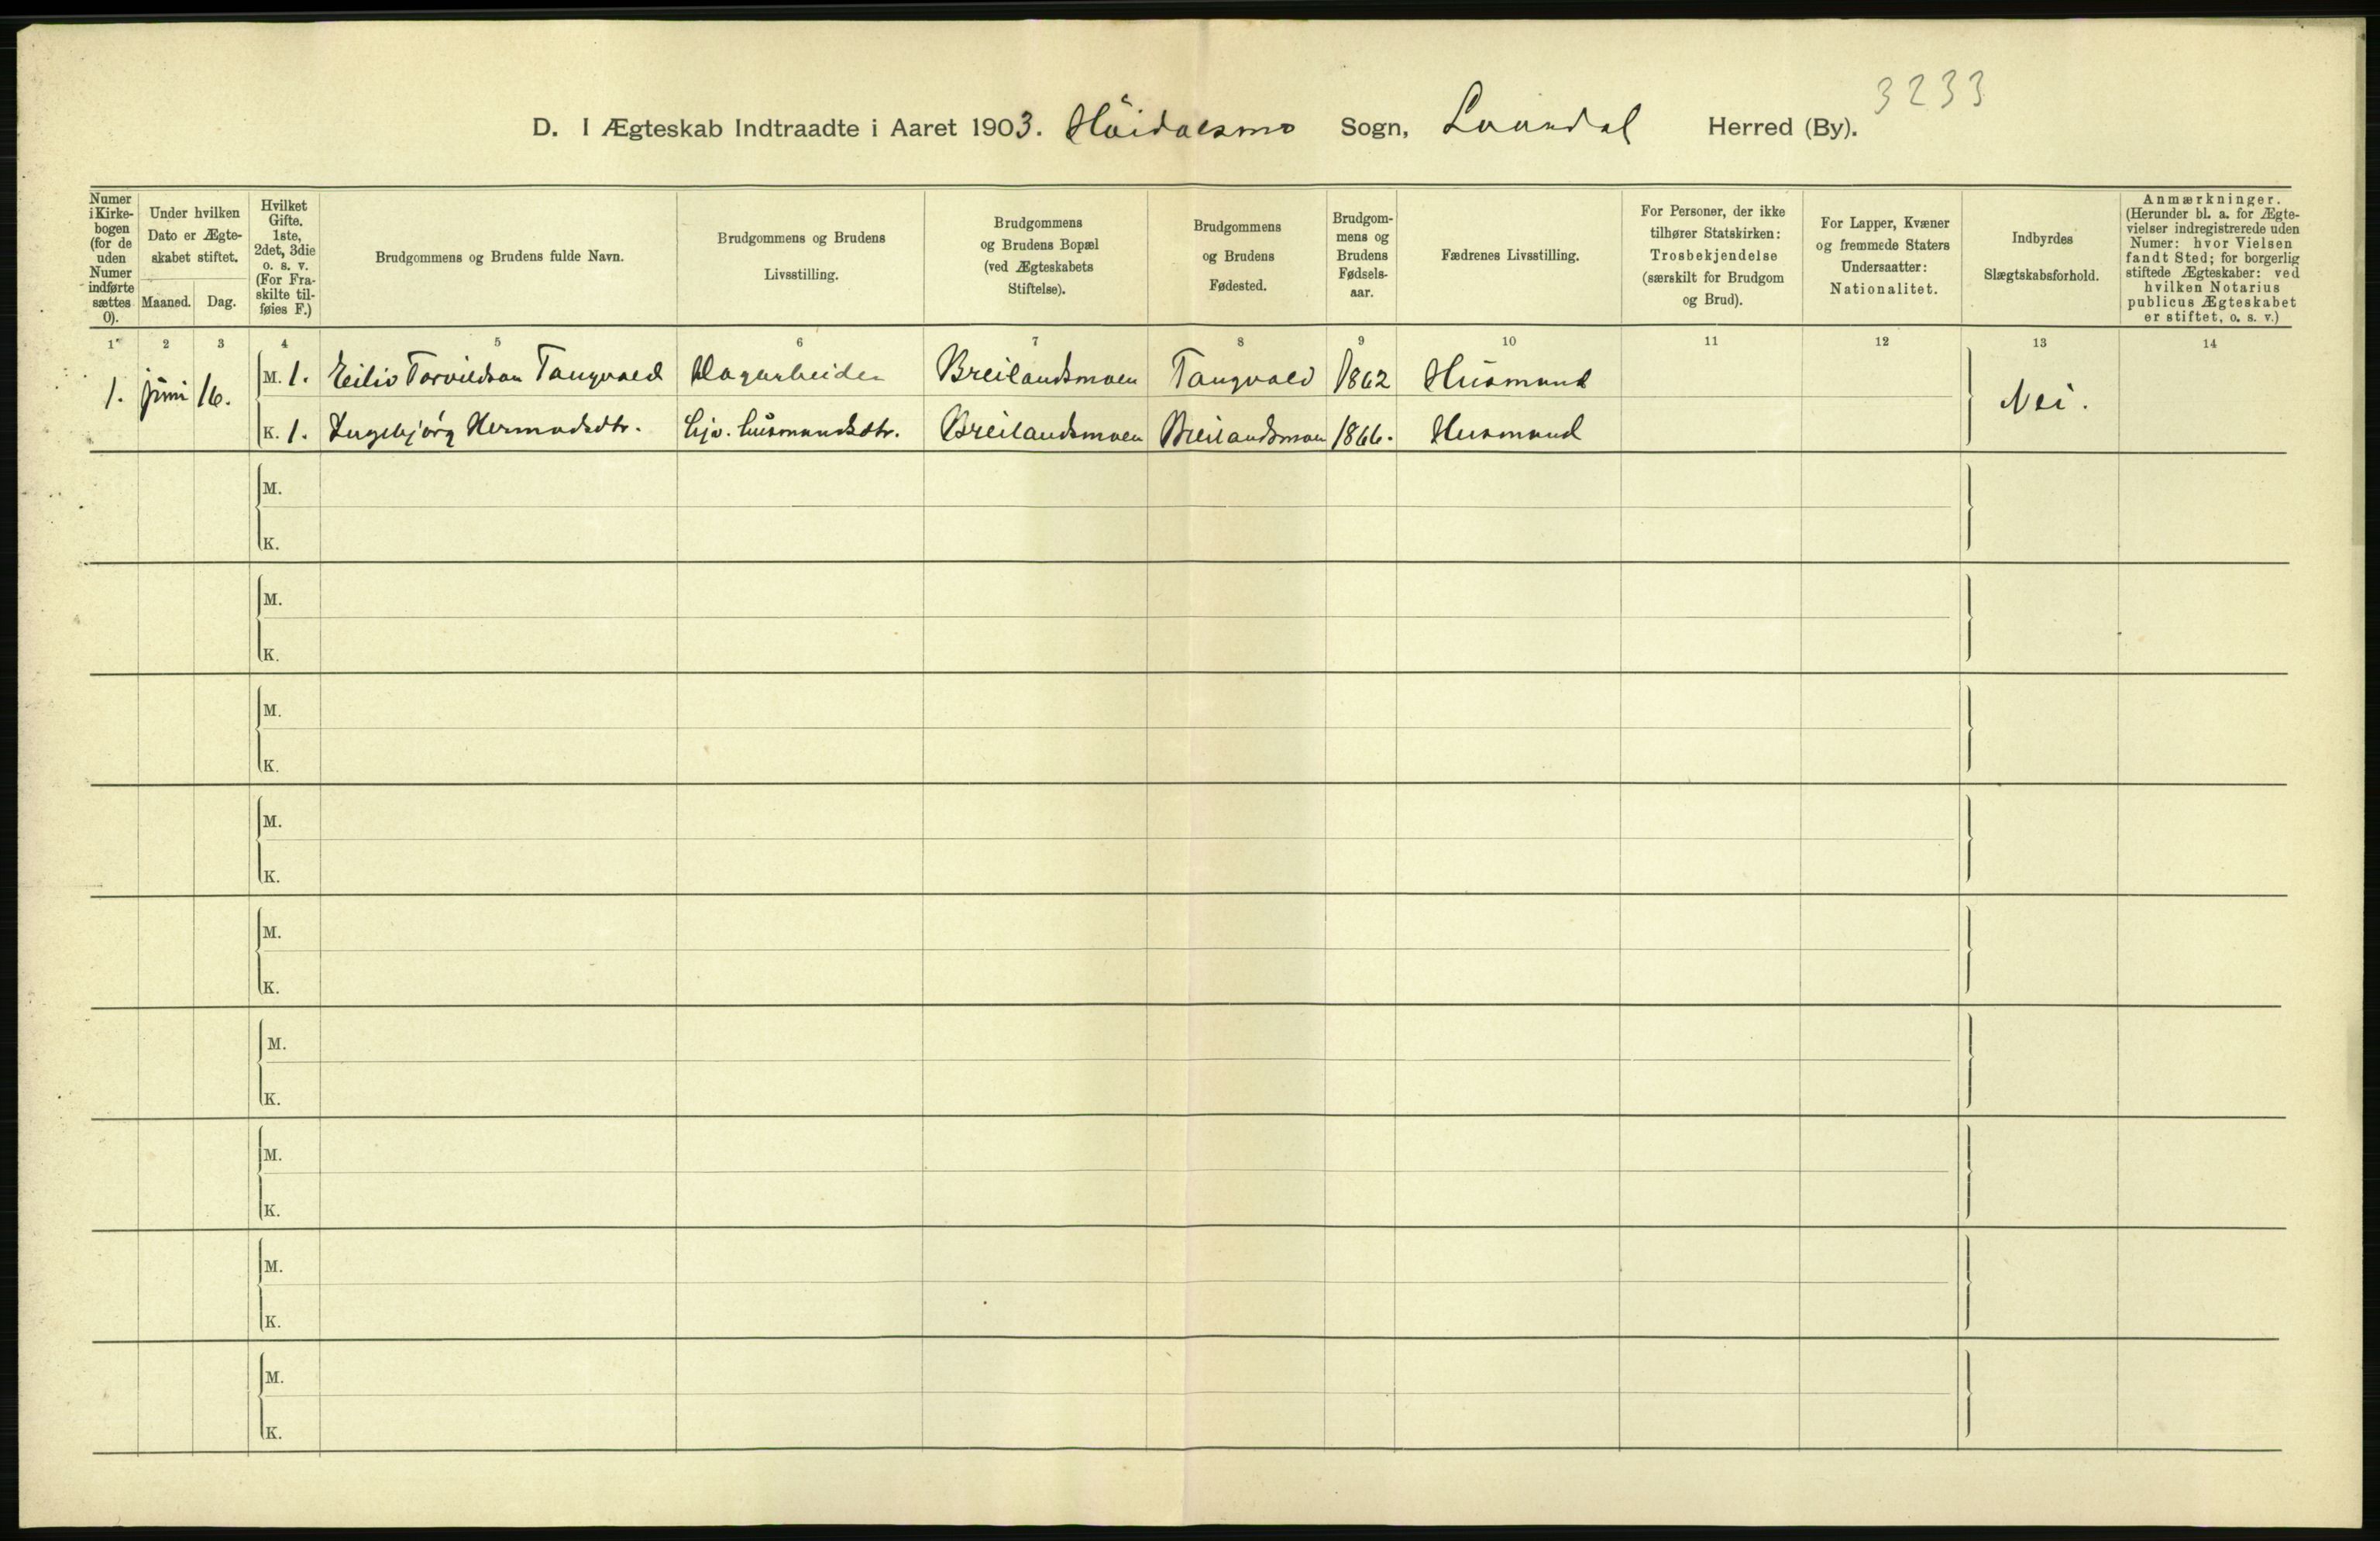 3233
D. I Ægteskab Indtraadte i Aaret 1903. Høidalsmo Sogn, Laurdal Herred (By).
Numer i Kirke-bogen (for de uden Numer indførte sættes 0).
Under hvilken Dato er Ægte-skabet stiftet.
Maaned.
Dag.
Hvilket Gifte. 1ste, 2det, 3die o. s. v. (For Fra-skilte til-føies F.)
Brudgommens og Brudens fulde Navn.
Brudgommens og Brudens Livsstilling.
Brudgommens og Brudens Bopæl (ved Ægteskabets Stiftelse).
Brudgommens og Brudens Fødested.
Brudgom-mens og Brudens Fødsels-aar.
Fædrenes Livsstilling.
For Personer, der ikke tilhører Statskirken: Trosbekjendelse (særskilt for Brudgom og Brud).
For Lapper, Kvæner og fremmede Staters Undersaatter: Nationalitet.
Indbyrdes Slægtskabsforhold.
Anmærkninger. (Herunder bl. a. for Ægte-vielser indregistrerede uden Numer: hvor Vielsen fandt Sted; for borgerlig stiftede Ægteskaber: ved hvilken Notarius publicus Ægteskabet er stiftet, o. s. v.)
1 2 3 4 5 6 7 8 9 10 11 12 13 14
1. juni 16. M. 1. Eiliv Torvildson Tangvald Dagarbeider Breilandsmoen Tangvald 1862 Husmand Nei.
K. 1. Ingebjörg Hermodsdtr. hjv. husmandsdtr. Breilandsmoen Breilandsmoen 1866. Husmand
M.
K.
M.
K.
M.
K.
M.
K.
M.
K.
M.
K.
M.
K.
M.
K.
M.
K.